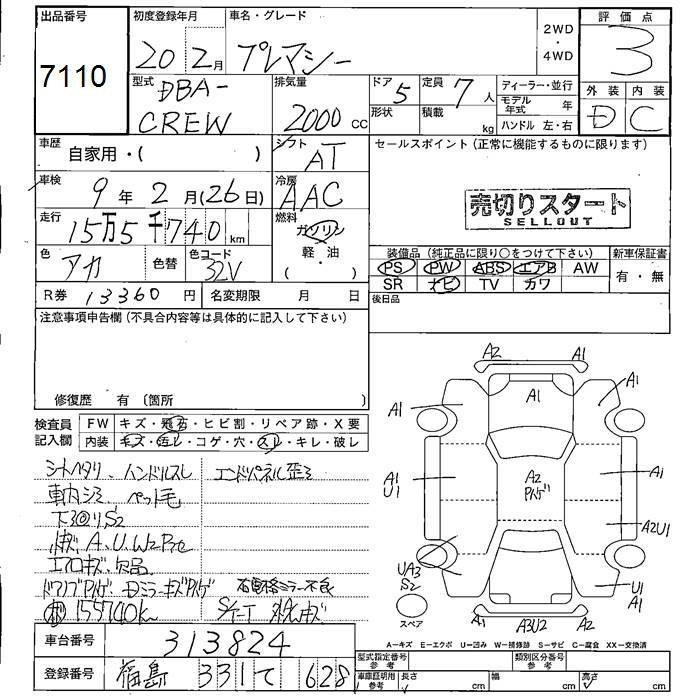 出品番号 初度登録年月 車名・グレード 2WD・4WD 評価点
7110 20年 2月 プレマシー 3
型式 DBA-CREW 排気量 2000cc ドア 5 形状 定員 7人 積載 kg ディーラー・並行 モデル年式 年 ハンドル 左・右 外装 D 内装 C
車歴 自家用・( ) シフト AT セールスポイント(正常に機能するものに限ります)
車検 9年 2月(26日) 冷房 AAC 売切りスタート
SELLOUT
走行 15万5千740km 燃料 ガソリン 軽・油 ・( )
色 アカ 色替 色コード 32V 装備品(純正品に限り○をつけて下さい) 新車保証書
PS PW ABS エアB AW 有・無
SR ナビ TV カワ
R券 13360円 名変期限 月 日 後日品
注意事項申告欄(不具合内容等は具体的に記入して下さい)
修復歴 有 〔箇所 〕
検査員記入欄 FW キズ・飛石・ヒビ割・リペア跡・X要
内装 キズ・汚レ・コゲ・穴・スレ・キレ・破レ
シートヘタリ、ハンドルスレ エンドパネル歪ミ
車内シミ ペット毛
下回リS2
A、U、W2
エアロキズ・欠品
155740km
A2 A1
A1 A1 A1
A1 U1 A2 ハゲ A1
A2U1
UA3 S2 U1 A1
スペア A1 A3U2 A2
A=キズ E=エクボ U=凹み W=補修跡 S=サビ C=腐食 XX=交換済
車台番号 313824 型式指定番号 参考 類別区分番号 参考
登録番号 福島 331 て 628 車庫証明用参考 長さ cm 幅 cm 高さ cm